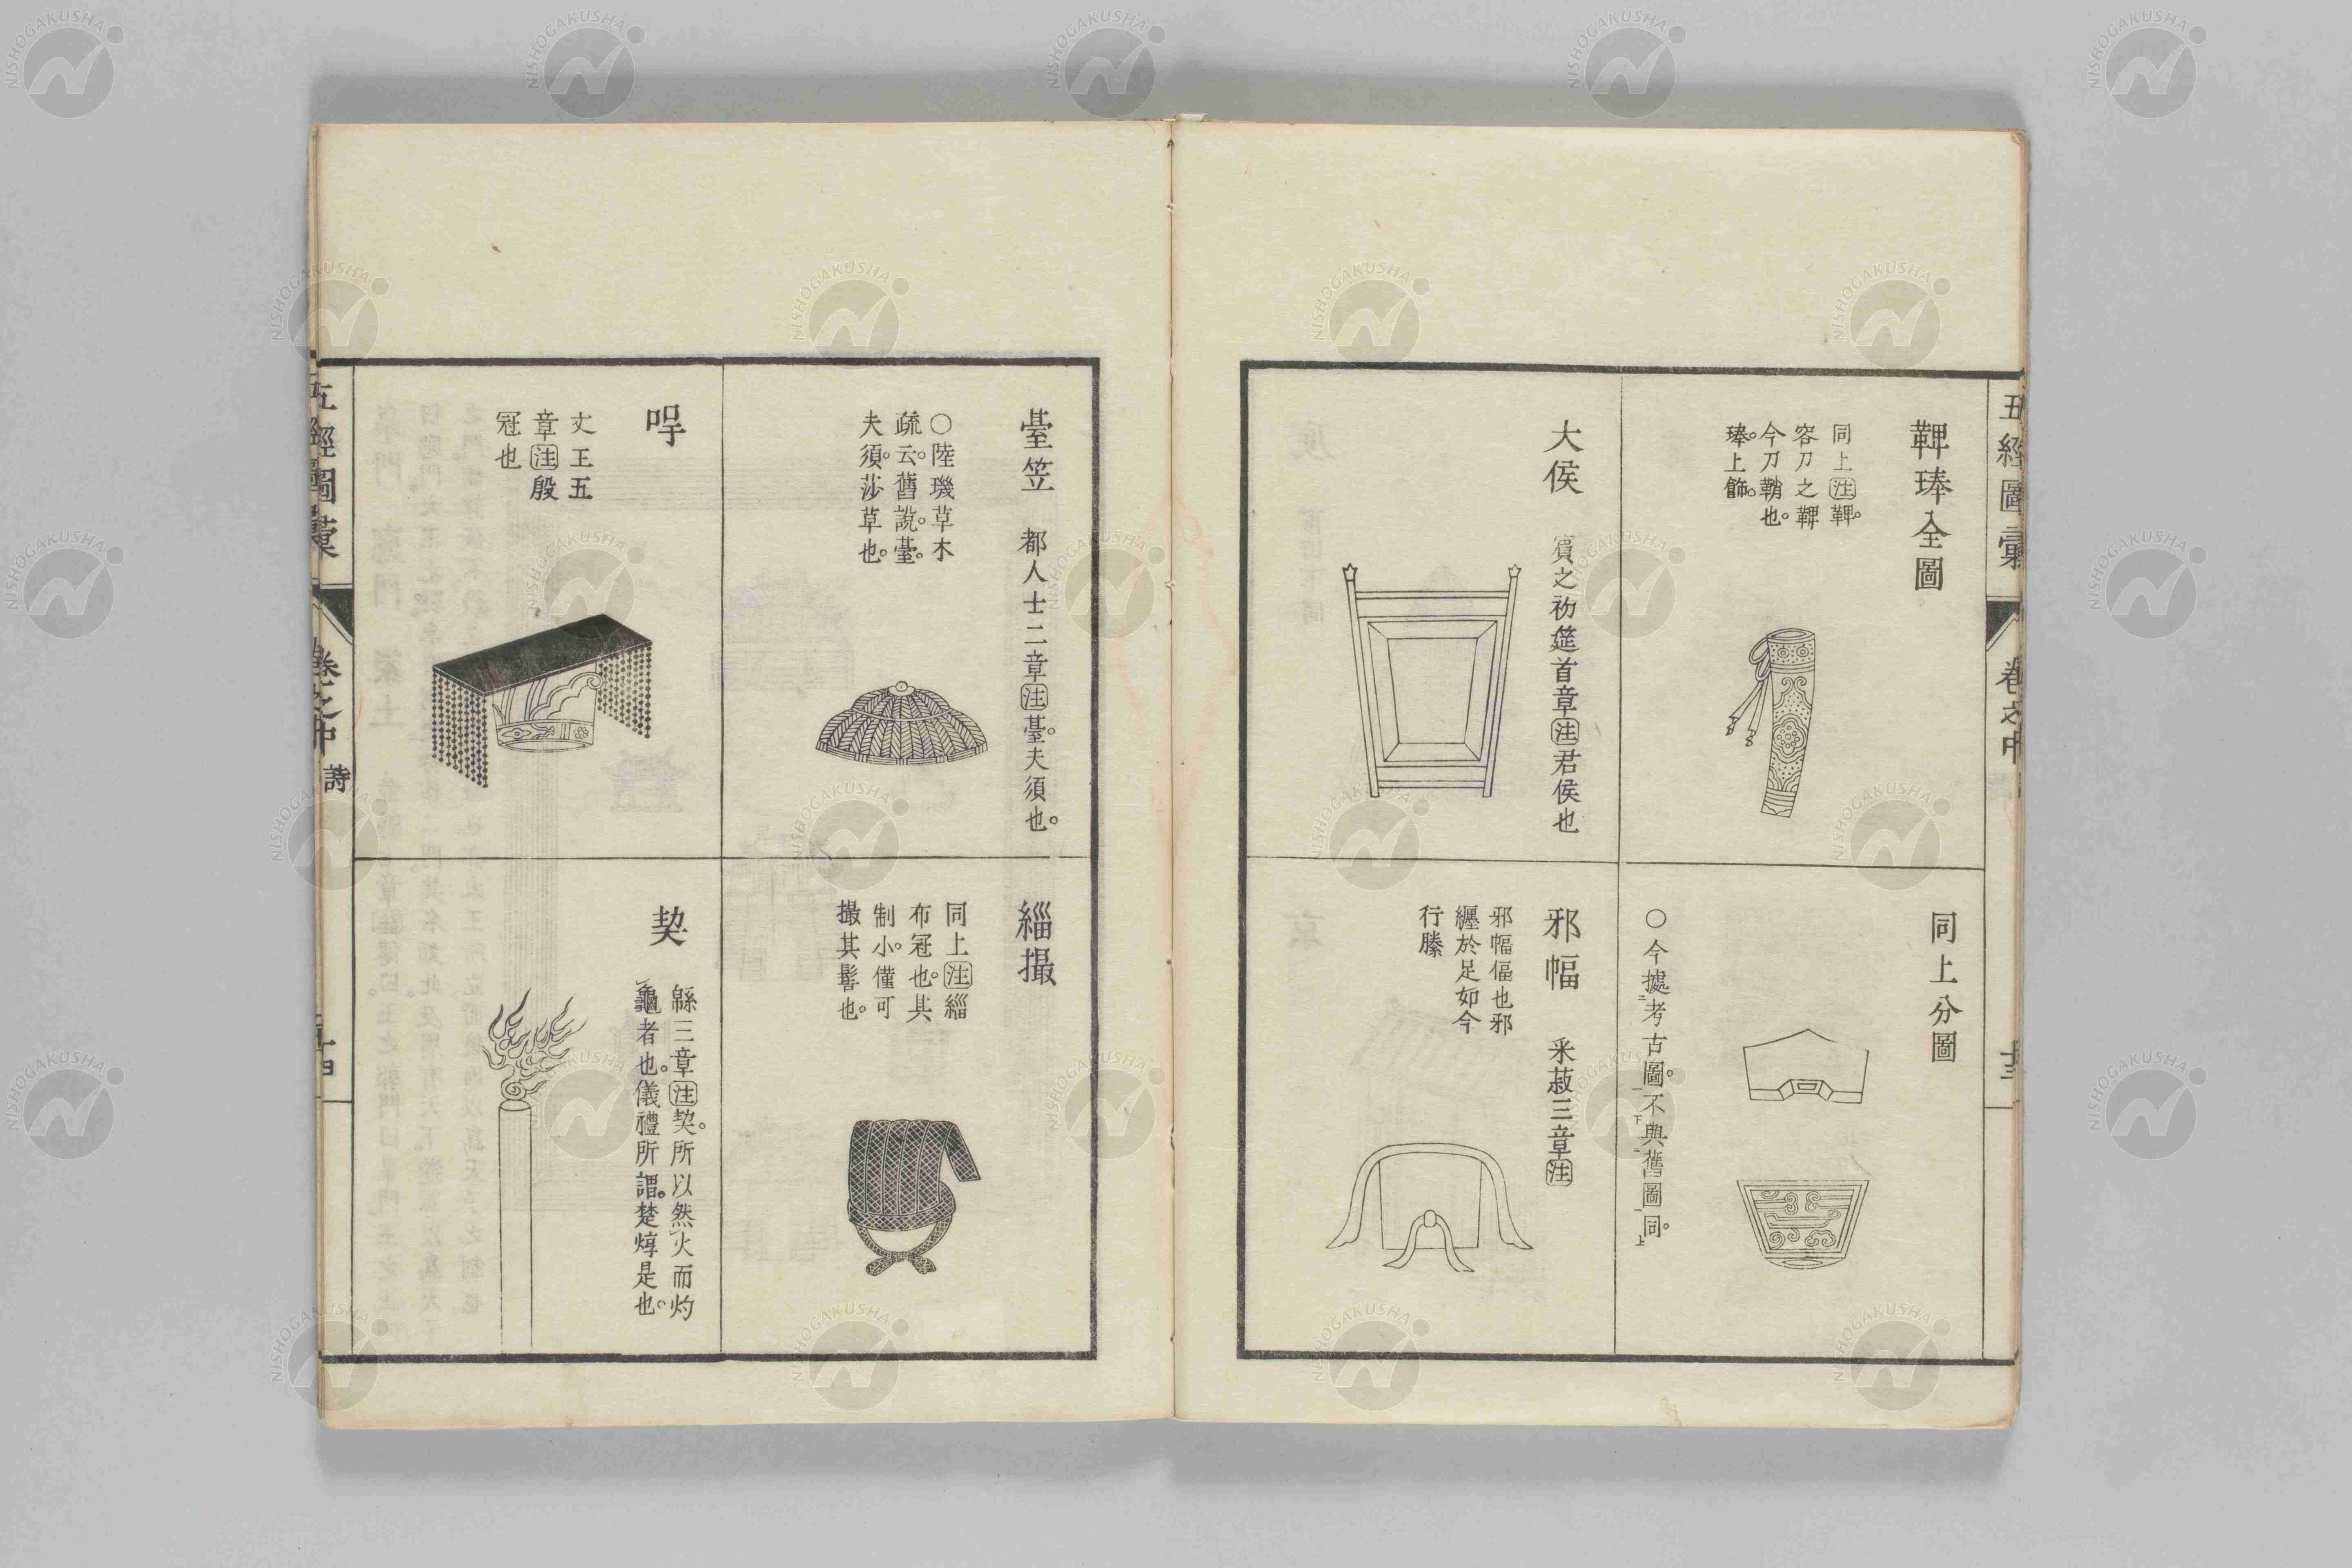 五經圖彙
卷之中
鞞琫全圖
同上注鞞。
容刀之鞞
今刀鞘也。
琫。上飾。
同上分圖
○今據考古圖。不與舊圖同。
大侯 賓之初筵首章注君侯也
邪幅 采菽三章注
邪幅偪也邪
纏於足如今
行縢
臺笠 都人士二章注臺。夫須也。
○陸璣草木
疏云。舊說。臺。
夫須。莎草也。
緇撮
同上注緇
布冠也。其
制小。僅可
撮其髻也。
冔
文王五
章注殷
冠也
契 緜三章注契。所以然火而灼
龜者也。儀禮所謂。楚焞是也。
五經圖彙
卷之中 詩
NISHOGAKUSHA